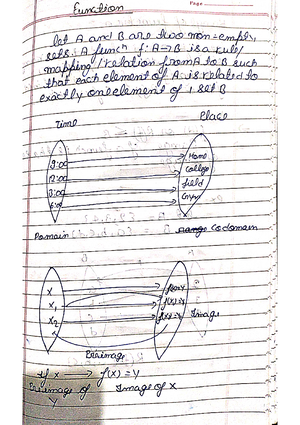 Function
let A and B are two non-empty
sets. A funcn f: A→B is a rule/
mapping/relation from A to B such
that each element of A is related to
exactly one element of set B
Time Place
9:00 Home
12:00 College
3:00 field
6:00 Gym
Domain Codomain
x f(x)=y
x1 f(x)=
x2 f(x)=
Image
Preimage
If x → f(x) = y
Preimage of Image of x
y